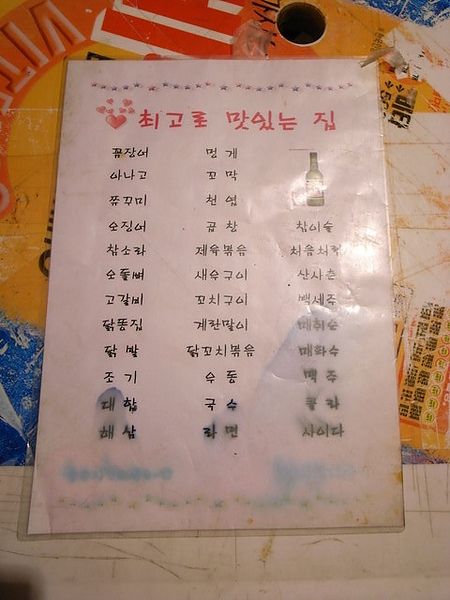 최고로 맛있는 집
꼼장어 멍게
아나고 꼬막
쭈꾸미 천엽
오징어 곱창 참이슬
참소라 제육볶음 처음처럼
오돌뼈 새우구이 산사춘
고갈비 꼬치구이 백세주
닭똥집 계란말이 매취순
닭발 닭꼬치볶음 매화수
조기 우동 맥주
대합 국수 콜라
해삼 라면 사이다